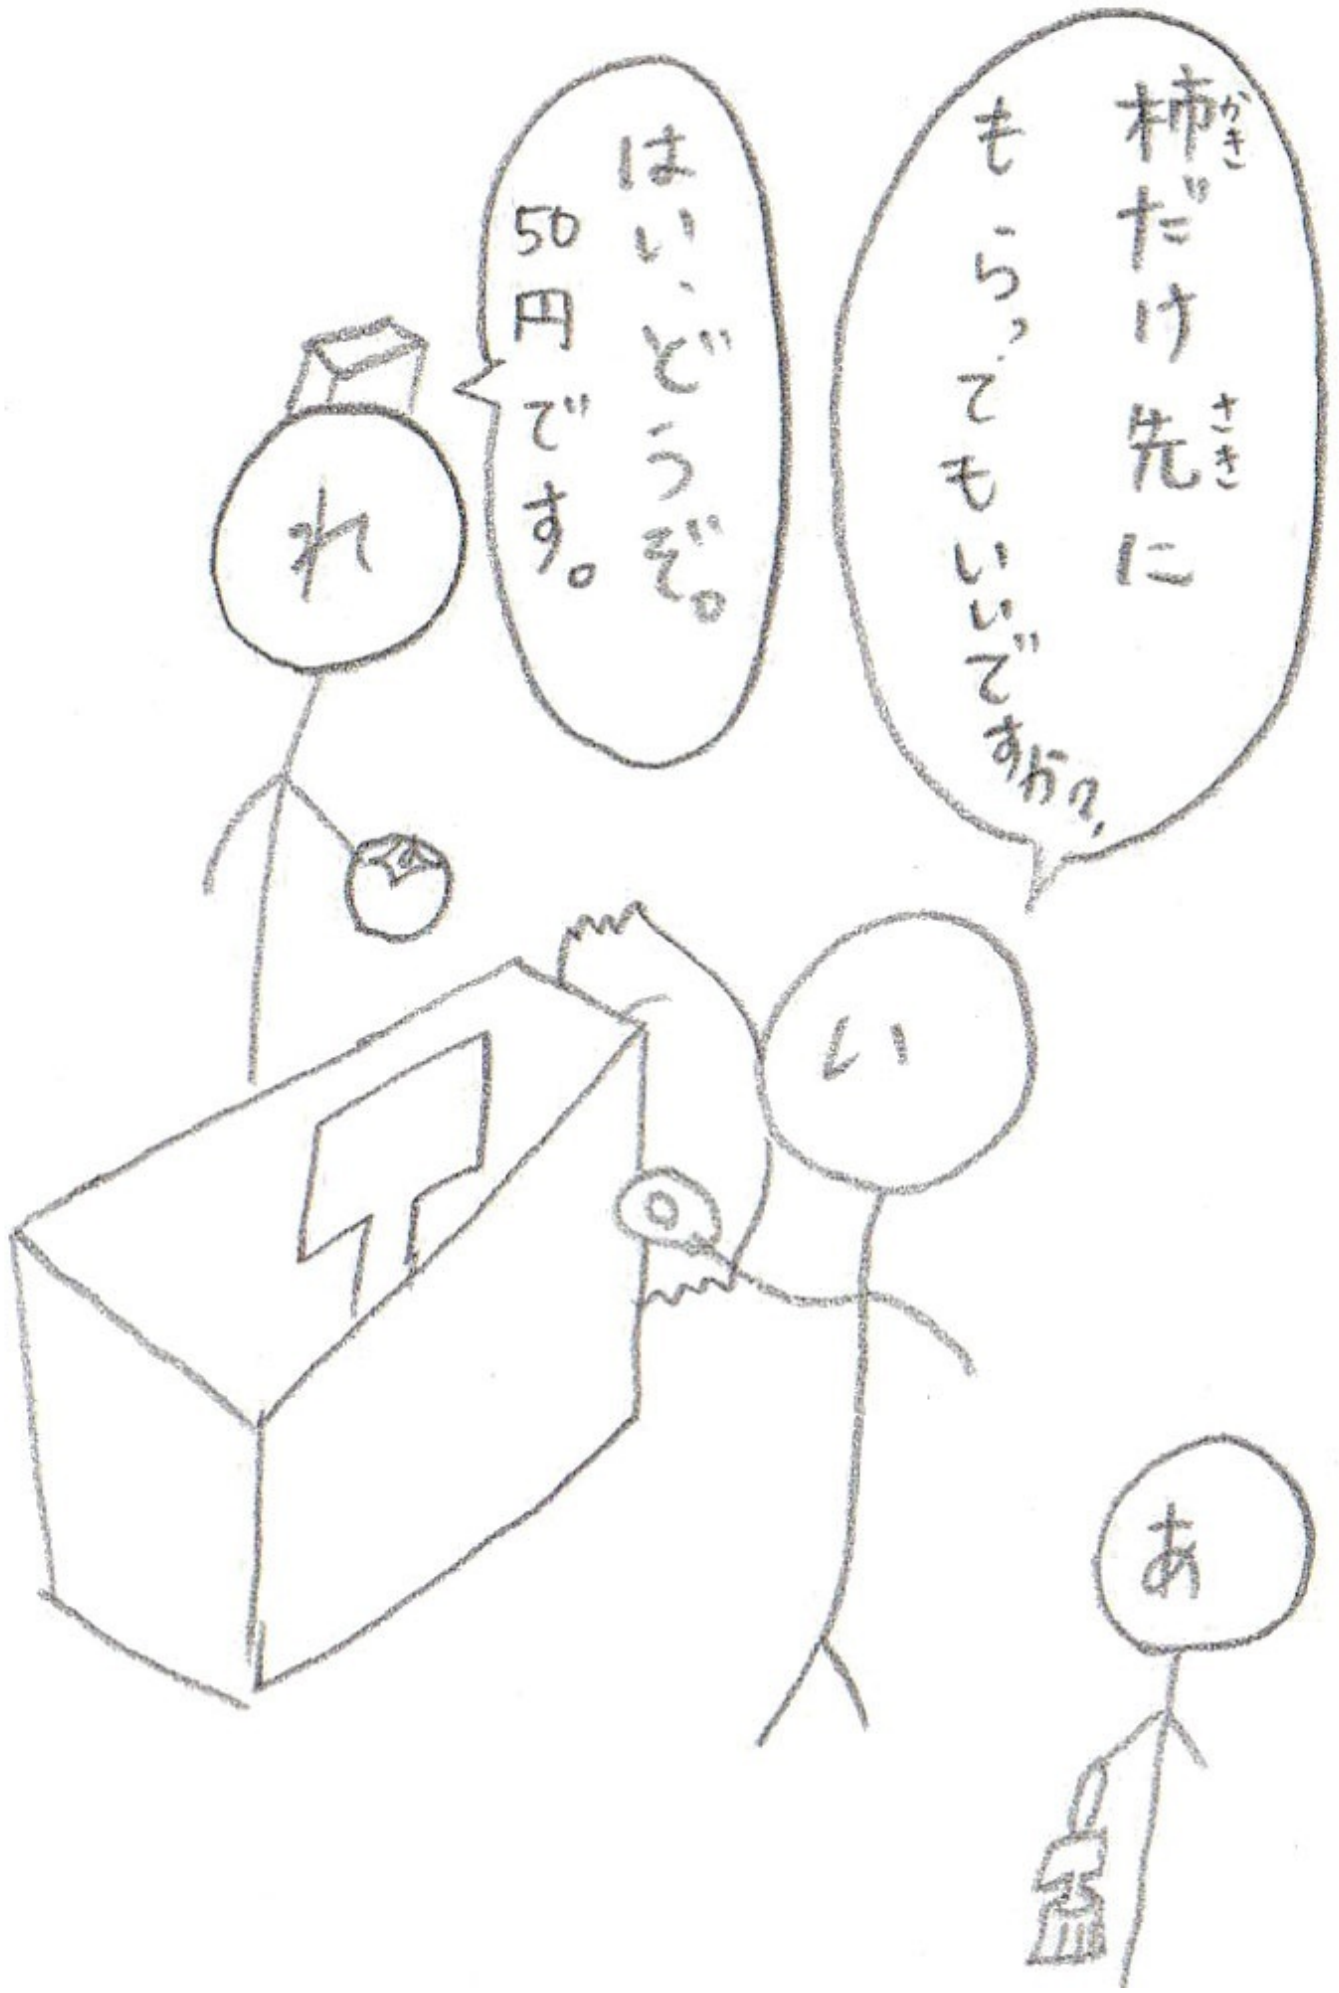 柿だけ先に
がき
さき
もらってもいいですか?
はい、どうぞ。
50円です。
れ
い
あ